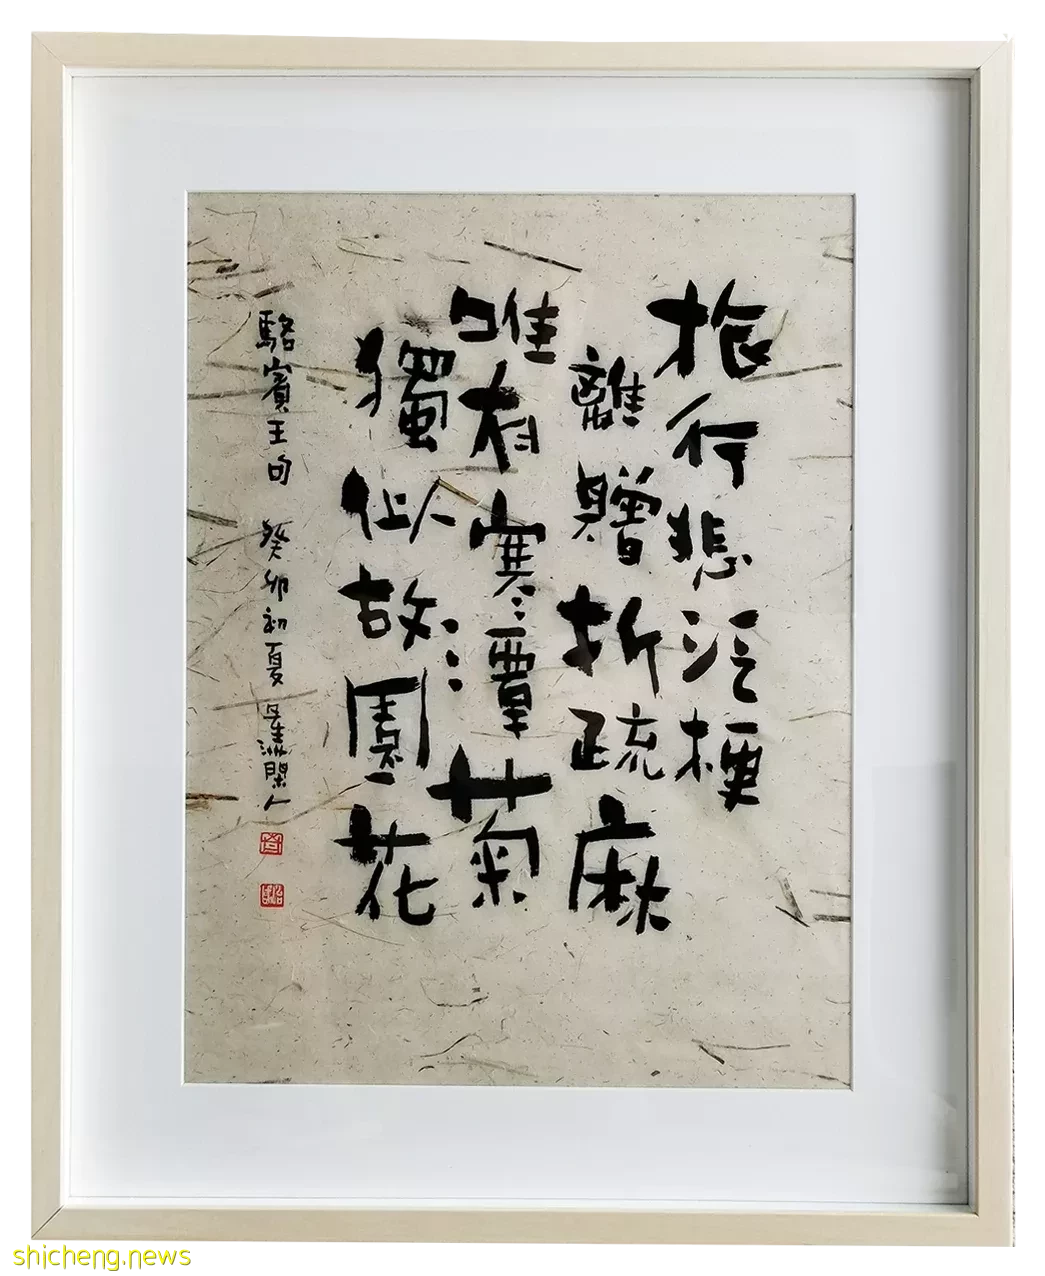 旅行悲泛梗
離贈折疏麻
唯有寒潭菊
獨似故園花
駱賓王句 癸卯初夏 星洲閑人
shicheng.news